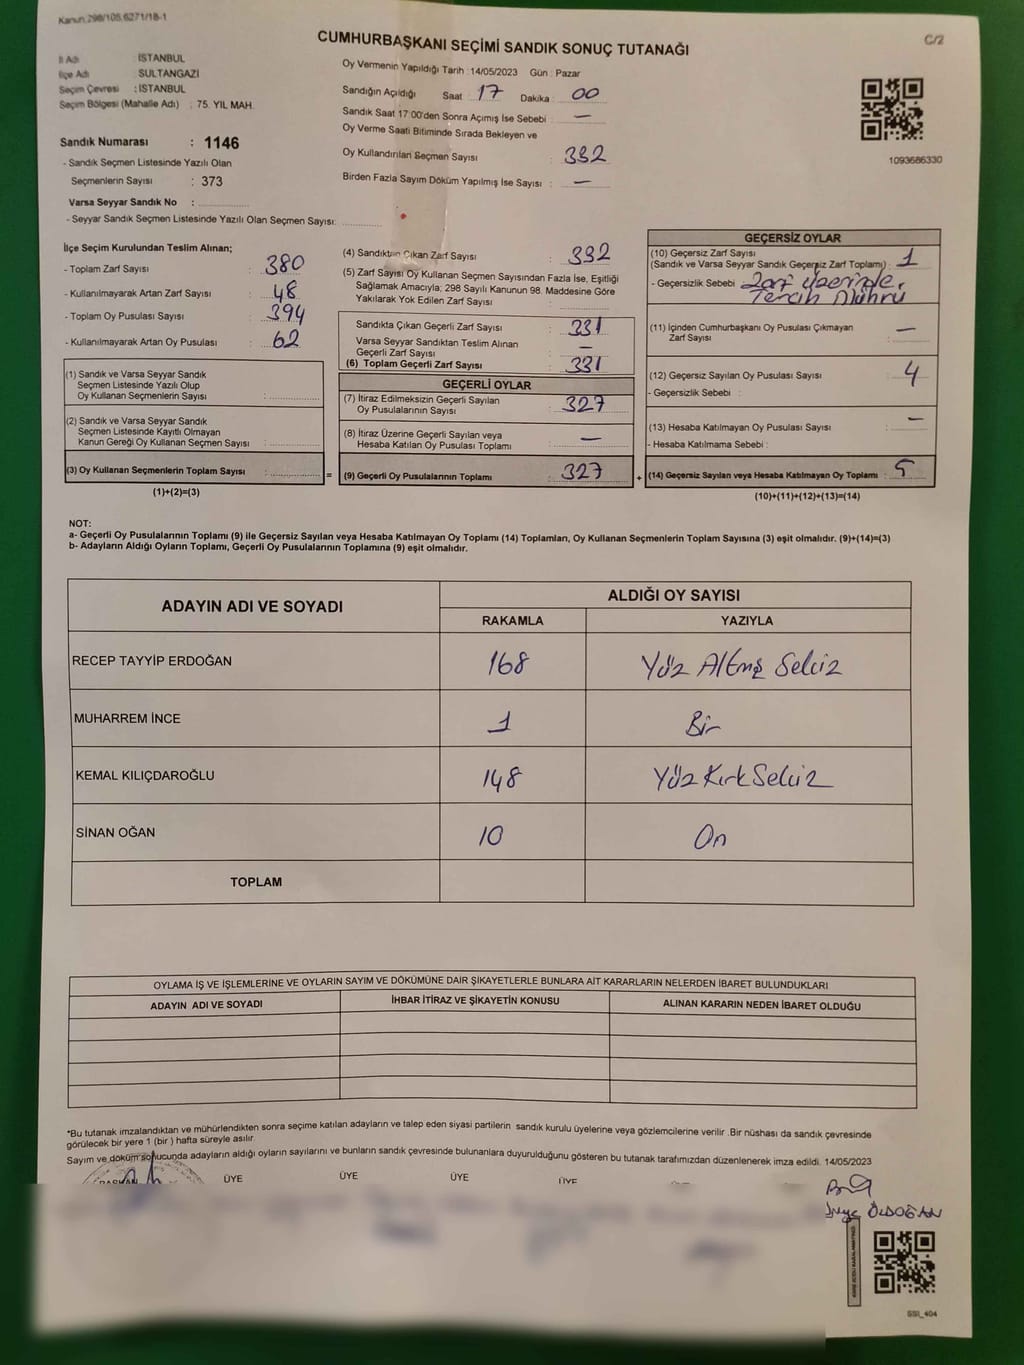 Kanun:298/105,6271/18-1
C/2
CUMHURBAŞKANI SEÇİMİ SANDIK SONUÇ TUTANAĞI
İl Adı İSTANBUL
İlçe Adı SULTANGAZİ
Seçim Çevresi : İSTANBUL
Seçim Bölgesi (Mahalle Adı) : 75. YIL MAH.
Sandık Numarası : 1146
- Sandık Seçmen Listesinde Yazılı Olan
Seçmenlerin Sayısı : 373
Varsa Seyyar Sandık No :
- Seyyar Sandık Seçmen Listesinde Yazılı Olan Seçmen Sayısı:
Oy Vermenin Yapıldığı Tarih :14/05/2023 Gün : Pazar
Sandığın Açıldığı Saat : 17 Dakika : 00
Sandık Saat 17:00'den Sonra Açımış İse Sebebi : —
Oy Verme Saati Bitiminde Sırada Bekleyen ve
Oy Kullandırılan Seçmen Sayısı : 332
Birden Fazla Sayım Döküm Yapılmış İse Sayısı : —
1093686330
İlçe Seçim Kurulundan Teslim Alınan;
- Toplam Zarf Sayısı : 380
- Kullanılmayarak Artan Zarf Sayısı : 48
- Toplam Oy Pusulası Sayısı : 394
- Kullanılmayarak Artan Oy Pusulası : 62
(1) Sandık ve Varsa Seyyar Sandık
Seçmen Listesinde Yazılı Olup
Oy Kullanan Seçmenlerin Sayısı :
(2) Sandık ve Varsa Seyyar Sandık
Seçmen Listesinde Kayıtlı Olmayan
Kanun Gereği Oy Kullanan Seçmen Sayısı :
(3) Oy Kullanan Seçmenlerin Toplam Sayısı : =
(1)+(2)=(3)
(4) Sandıktan Çıkan Zarf Sayısı : 332
(5) Zarf Sayısı Oy Kullanan Seçmen Sayısından Fazla İse, Eşitliği
Sağlamak Amacıyla; 298 Sayılı Kanunun 98. Maddesine Göre
Yakılarak Yok Edilen Zarf Sayısı :
Sandıkta Çıkan Geçerli Zarf Sayısı : 331
Varsa Seyyar Sandıktan Teslim Alınan
Geçerli Zarf Sayısı : —
(6) Toplam Geçerli Zarf Sayısı : 331
GEÇERLİ OYLAR
(7) İtiraz Edilmeksizin Geçerli Sayılan
Oy Pusulalarının Sayısı : 327
(8) İtiraz Üzerine Geçerli Sayılan veya
Hesaba Katılan Oy Pusulası Toplamı : —
(9) Geçerli Oy Pusulalarının Toplamı : 327 +
GEÇERSİZ OYLAR
(10) Geçersiz Zarf Sayısı
(Sandık ve Varsa Seyyar Sandık Geçersiz Zarf Toplamı) : 1
- Geçersizlik Sebebi : Zarf üzerinde,
Tercih Mührü
(11) İçinden Cumhurbaşkanı Oy Pusulası Çıkmayan
Zarf Sayısı : —
(12) Geçersiz Sayılan Oy Pusulası Sayısı : 4
- Geçersizlik Sebebi :
(13) Hesaba Katılmayan Oy Pusulası Sayısı : —
- Hesaba Katılmama Sebebi :
(14) Geçersiz Sayılan veya Hesaba Katılmayan Oy Toplamı : 5
(10)+(11)+(12)+(13)=(14)
NOT:
a- Geçerli Oy Pusulalarının Toplamı (9) ile Geçersiz Sayılan veya Hesaba Katılmayan Oy Toplamı (14) Toplamları, Oy Kullanan Seçmenlerin Toplam Sayısına (3) eşit olmalıdır. (9)+(14)=(3)
b- Adayların Aldığı Oyların Toplamı, Geçerli Oy Pusulalarının Toplamına (9) eşit olmalıdır.
ADAYIN ADI VE SOYADI ALDIĞI OY SAYISI
RAKAMLA YAZIYLA
RECEP TAYYİP ERDOĞAN 168 Yüz Altmış Sekiz
MUHARREM İNCE 1 Bir
KEMAL KILIÇDAROĞLU 148 Yüz Kırk Sekiz
SİNAN OĞAN 10 On
TOPLAM
OYLAMA İŞ VE İŞLEMLERİNE VE OYLARIN SAYIM VE DÖKÜMÜNE DAİR ŞİKAYETLERLE BUNLARA AİT KARARLARIN NELERDEN İBARET BULUNDUKLARI
ADAYIN ADI VE SOYADI İHBAR İTİRAZ VE ŞİKAYETİN KONUSU ALINAN KARARIN NEDEN İBARET OLDUĞU
*Bu tutanak imzalandıktan ve mühürlendikten sonra seçime katılan adayların ve talep eden siyasi partilerin sandık kurulu üyelerine veya gözlemcilerine verilir .Bir nüshası da sandık çevresinde
görülecek bir yere 1 (bir ) hafta süreyle asılır.
Sayım ve döküm sonucunda adayların aldığı oyların sayılarını ve bunların sandık çevresinde bulunanlara duyurulduğunu gösteren bu tutanak tarafımızdan düzenlenerek imza edildi. 14/05/2023
BAŞKAN ÜYE ÜYE ÜYE ÜYE
ÖLDOĞAN
SSI_404